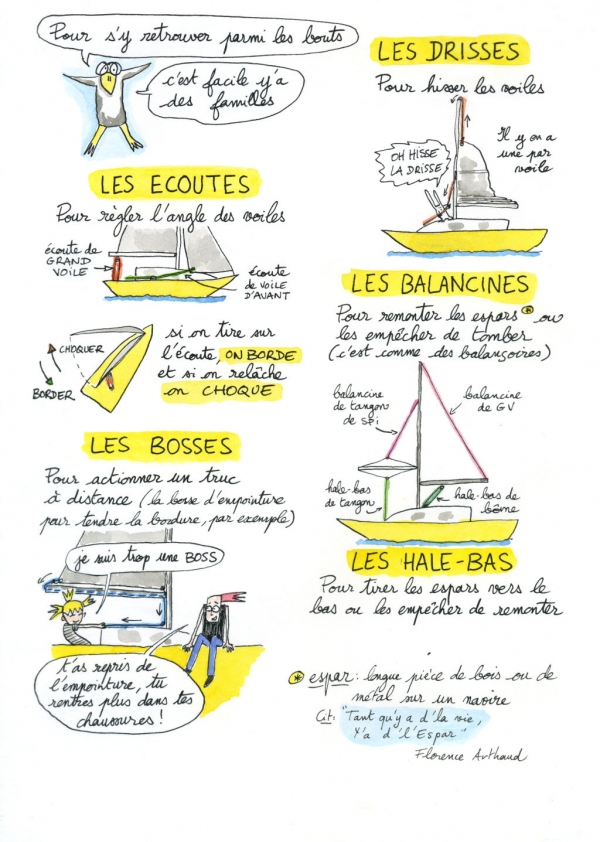 Pour s'y retrouver parmi les bouts
c'est facile y'a
des familles
LES ECOUTES
Pour règler l'angle des voiles
écoute de
GRAND
VOILE
écoute
de VOILE
D'AVANT
CHOQUER
BORDER
si on tire sur
l'écoute, ON BORDE
et si on relâche
on CHOQUE
LES BOSSES
Pour actionner un truc
à distance (la bosse d'empointure
pour tendre la bordure, par exemple)
je suis trop une BOSS
t'as repris de
l'empointure, tu
rentres plus dans tes
chaussures!
LES DRISSES
Pour hisser les voiles
Il y en a
une par
voile
OH HISSE
LA DRISSE
LES BALANCINES
Pour remonter les espars * ou
les empêcher de tomber
(c'est comme des balançoires)
balancine
de tangon
de SPI
balancine
de GV
hale-bas
de tangon
hale-bas de
bôme
LES HALE-BAS
Pour tirer les espars vers le
bas ou les empêcher de remonter
* espar : longue pièce de bois ou de
métal sur un navire
Cit: "Tant qu'y a d'la vie,
Y'a d'l'Espar"
Florence Arthaud